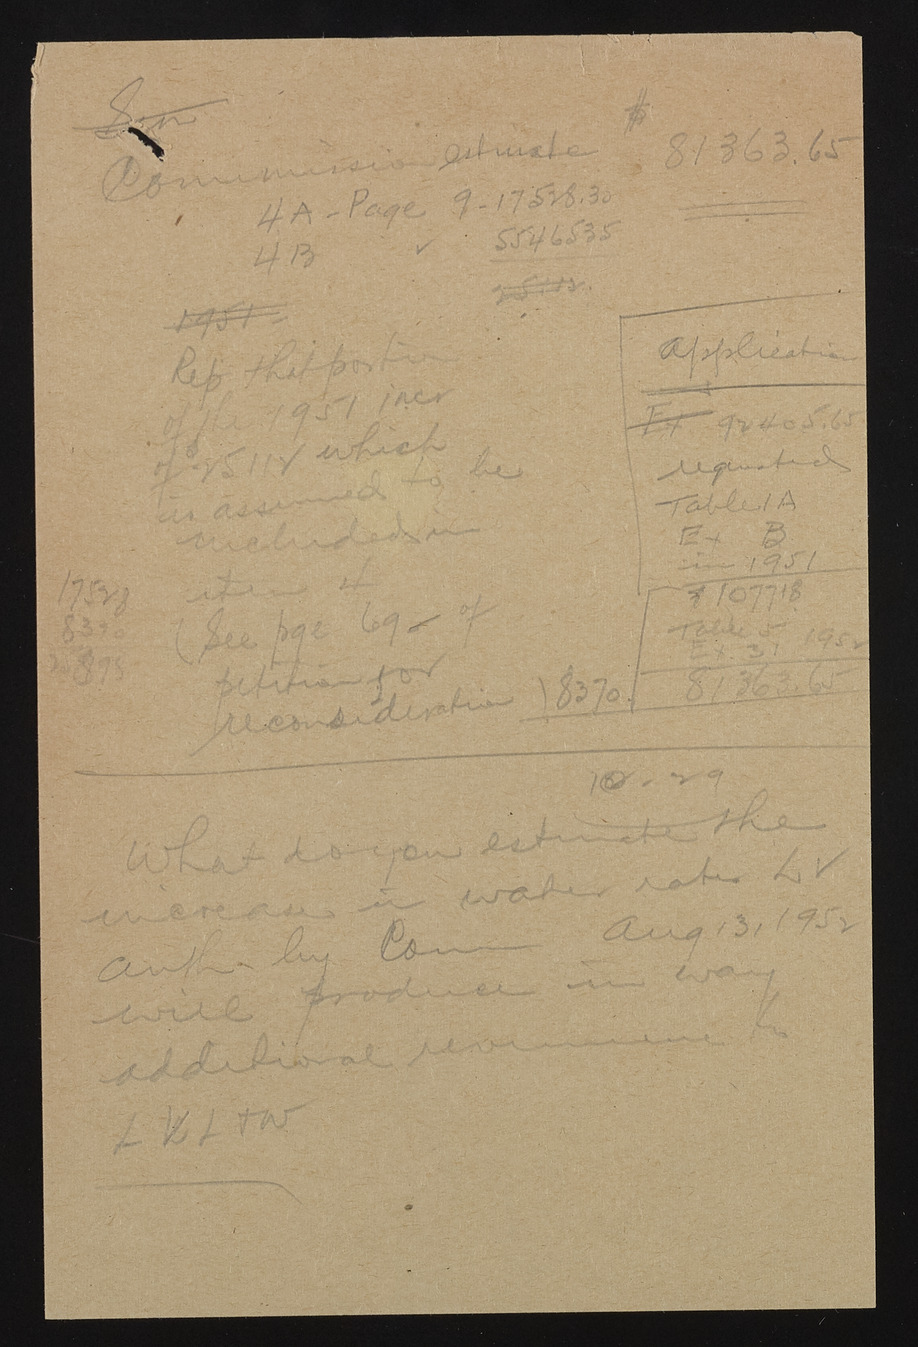 Commission estimate $ 81363.65
4A - Page 9 - 17528.30
4B ✓ 5546535
25112.
1951 -
Rep that portion
of the 1951 incr
of 25112 which
is assumed to be
included in
item 4
(See pge 69 - of
petition for
reconsideration ) 8370.
17528
8370
25893
Application
Ex 92405.65
requested
Table 1A
Ex B
in 1951
$107718
Table 5 1952
Ex. 31
81363.65
10-29
What do you estimate the
increase in water rates LV
auth. by Com Aug 13, 1952
will produce in way
additional revenue to
LVL+W